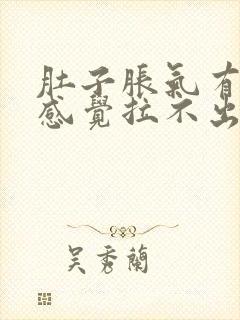 肚子脹氣有
感覺拉不出
吳秀蘭